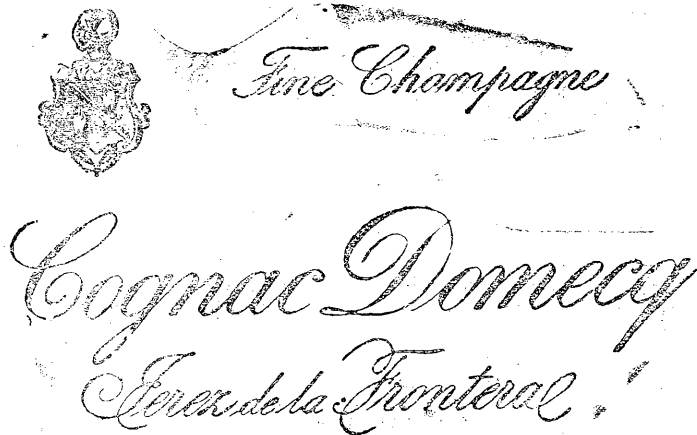 Fine Champagne
Cognac Domecq
Jerez de la Frontera